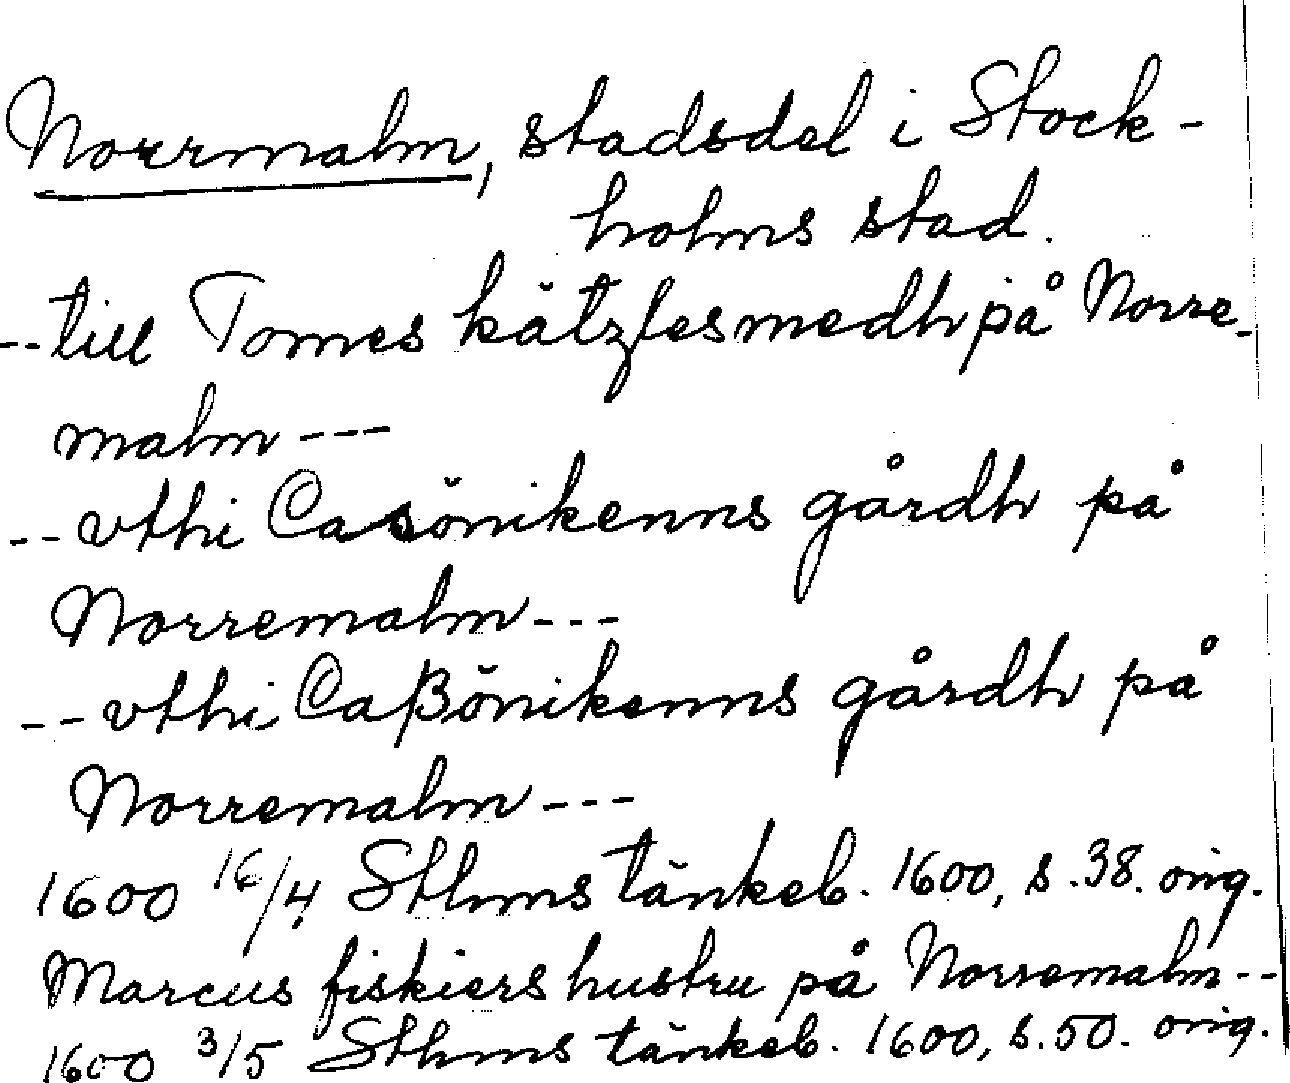 Norrmalm, stadsdel i Stock-
holms stad.
--till Tomes kätzlesmedh på Norre-
malm---
--vthi Casönikenns gårdh på
Norremalm---
--vthi Caßönikenns gårdh på
Norremalm---
1600 16/4 Sthms tänkeb. 1600, s.38. orig.
Marcus fiskiers hustru på Norremalm--
1600 3/5 Sthms tänkeb. 1600, s.50. orig.